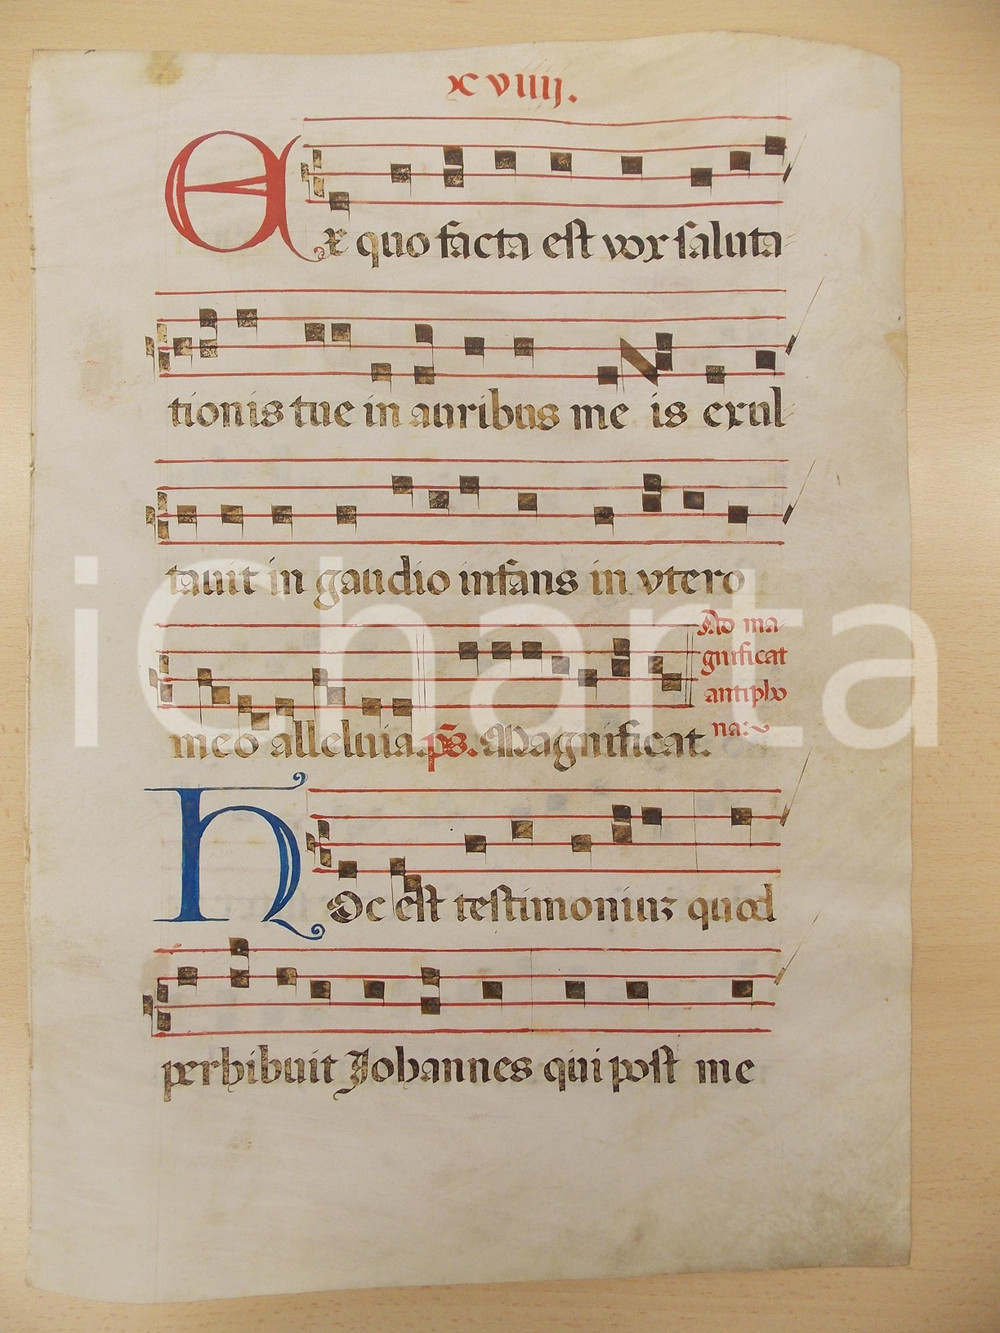 xviiij.
Ex quo facta est vox saluta
tionis tue in auribus me is exul
tauit in gaudio infans in vtero
meo alleluia. ps. Magnificat.
Ad ma
gnificat
antipho
na:
Hoc est testimoniuz quod
perhibuit Johannes qui post me
iCharta